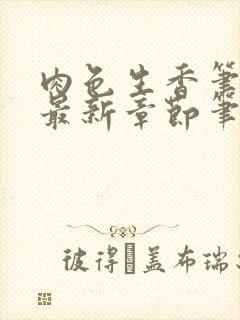 肉色生香笔
最新章节笔
彼得·盖布瑞